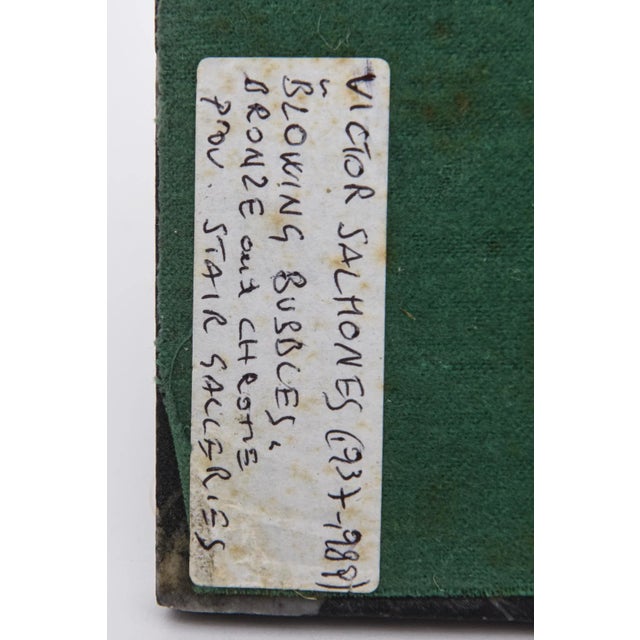 VICTOR SALMONES (1937-1989)
"BLOWING BUBBLES"
BRONZE and CHROME
Prov. STAIR GALLERIES